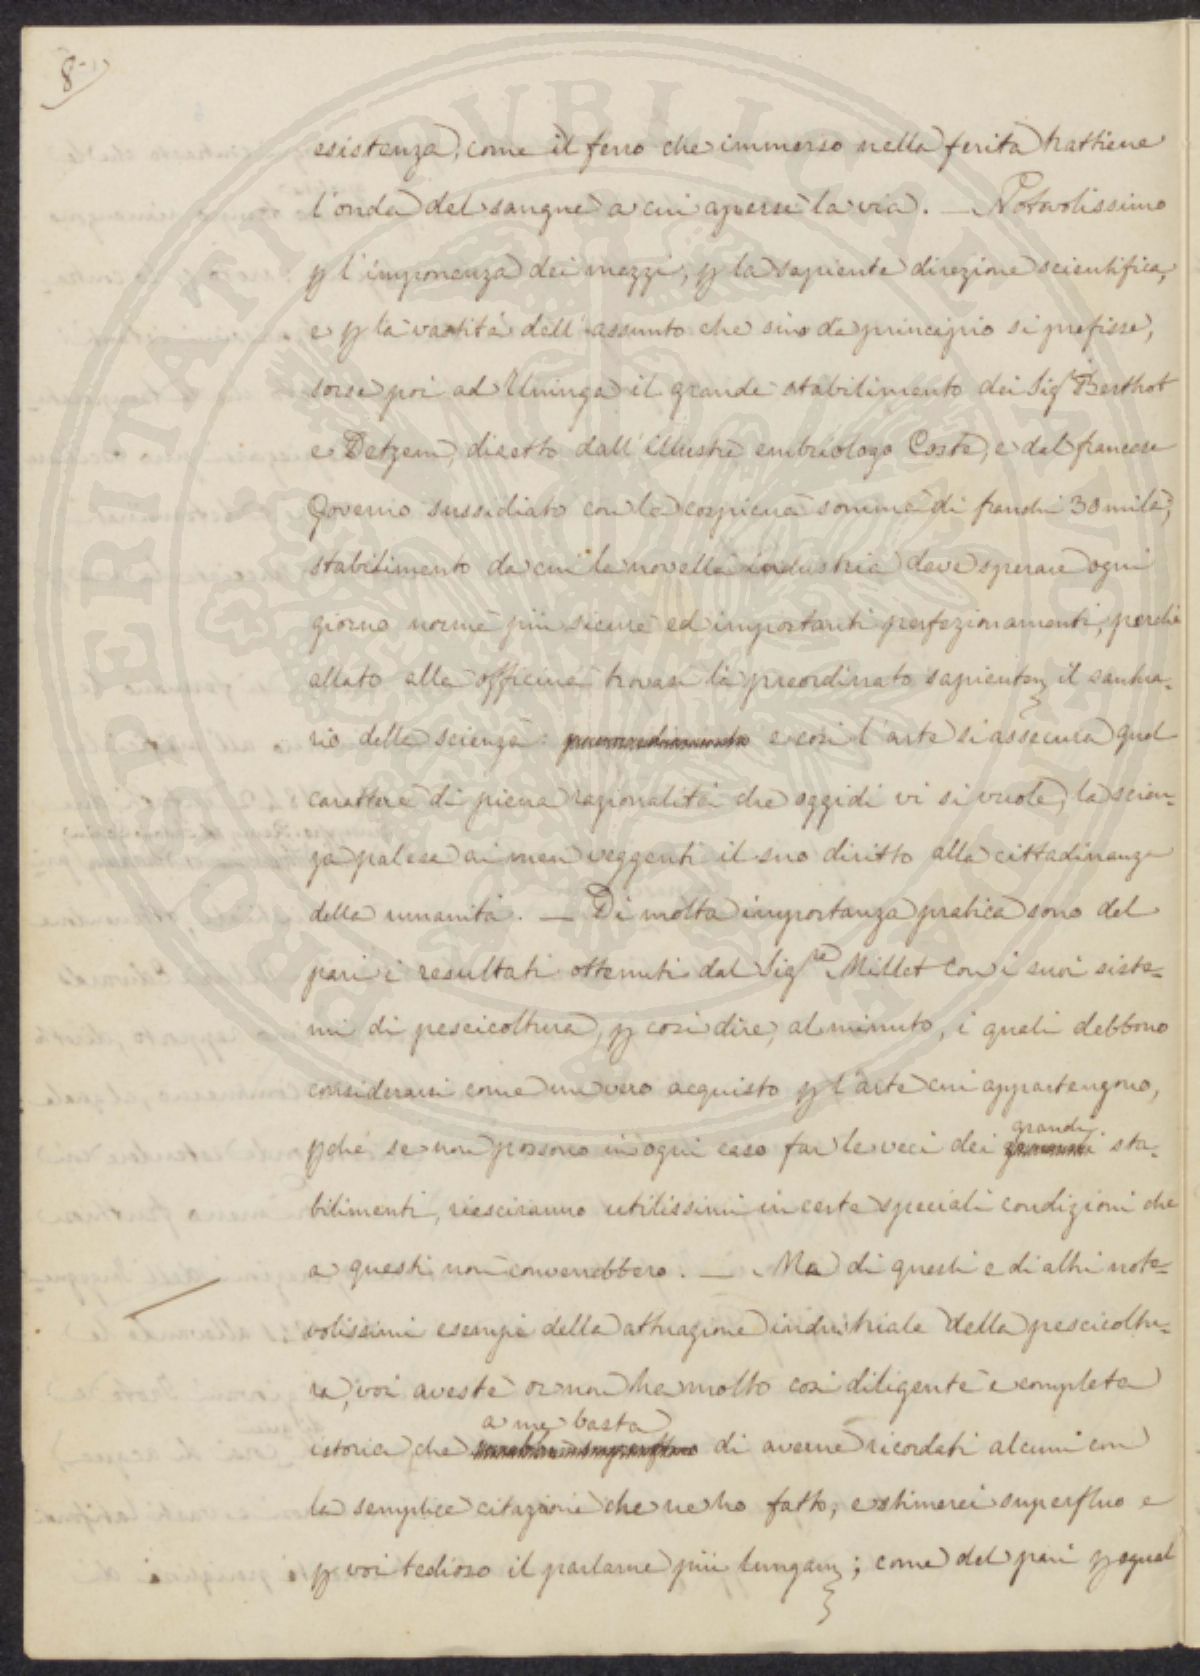 8
esistenza, come il ferro che immerso nella ferita trattiene
l'onda del sangue a cui aperse la via. — Notevolissimo
p l'imponenza dei mezzi, p la sapiente direzione scientifica,
e p la vastità dell'assunto che sino da principio si prefisse,
sorse poi ad Uninga il grande stabilimento dei Sig.i Berthot
e Detzem, diretto dall'illustre embriologo Coste, e dal francese
Governo sussidiato con la cospicua somma di franchi 30 mila,
stabilimento da cui la novella industria deve sperare ogni
giorno norme più sicure ed importanti perfezionamenti, perchè
allato alle officine trovasi là preordinato sapientem il santua-
rio della scienza: e così l'arte si assecura quel
carattere di piena razionalità che oggidì vi si vuole, la scien-
za palesa ai men veggenti il suo diritto alla cittadinanza
della umanità. — Di molta importanza pratica sono del
pari i resultati ottenuti dal Sig.re Millet con i suoi siste-
mi di pescicoltura, p così dire, al minuto, i quali debbono
considerarsi come un vero acquisto p l'arte cui appartengono,
pchè se non possono in ogni caso far le veci dei grandi sta-
bilimenti, riesciranno utilissimi in certe speciali condizioni che
a questi non converrebbero. — Ma di questi e di altri note-
volissimi esempi della attuazione industriale della pescicoltu-
ra, voi aveste or non ha molto così diligente e completa
istoria che a me basta di averne ricordati alcuni con
la semplice citazione che ne ho fatto, e stimerei superfluo e
p voi tedioso il parlarne più lungam; come del pari p egual
PERITATI PVBLICAE